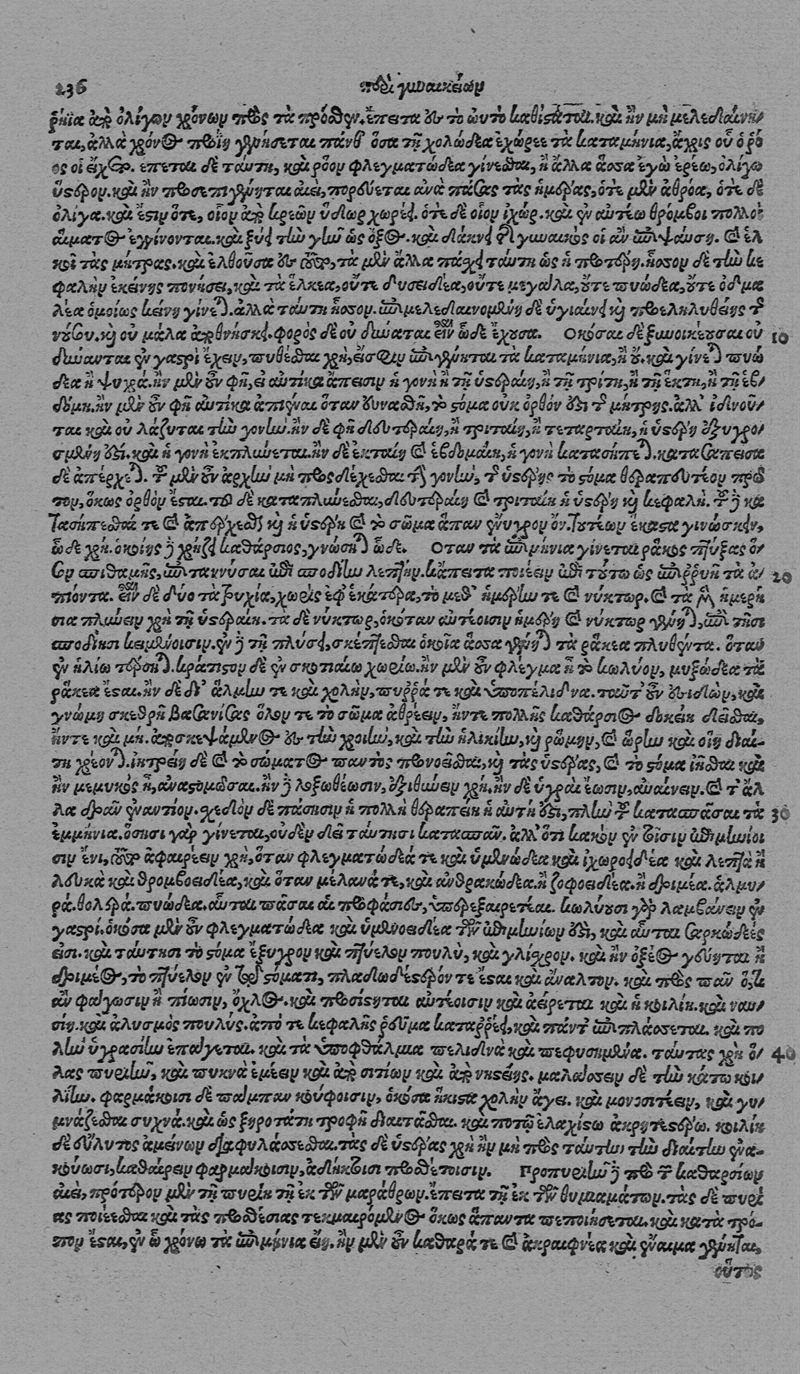 236 περὶ γυναικείων
ρηϊα διὰ ὀλίγων χρόνων πρὸς τὰ πρόσθεν. ἔπειτα ἐς τὸ ὠυτὸ καθίσταται. καὶ ἢν μὴ μελεδαίνη/
ται, ἀλλὰ χρόνος προΐῃ γενήσεται πάνθ' ὅσα τῇ χολώδεα ἐχώρεε τὰ καταμήνια, ἄχρις οὗ ὁ ῥό
ος οἱ εἶχεν. ἕπεται δὲ ταύτῃ, καὶ ῥόον φλεγματώδεα γίνεσθαι, ἢ ἄλλα ἅσσα ἐγὼ ἐρέω, ὀλίγῳ
ὕστερον. καὶ ἢν προσεπιγένηται αἰεὶ, πορεύεται ἀνὰ πάσας τὰς ἡμέρας, ὁτὲ μὲν ἀθρόα, ὁτὲ δὲ
ὀλίγα. καὶ ἔστιν ὅτε, οἷον ἀπὸ κρεῶν ὕδωρ χωρέει. ὁτὲ δὲ οἷον ἰχώρ. καὶ ἐν αὐτέῳ θρόμβοι πολλοὶ
αἵματος ἐγγίνονται. καὶ ξύει τὴν γῆν ὡς ὄξος. καὶ δάκνει τῆς γυναικὸς οἷ ἂν ἐπιψαύσῃ. καὶ ἑλ
κοῖ τὰς μήτρας. καὶ ἐλθοῦσα ἐς τοῦτο, τὰ μὲν ἄλλα πάσχει ταύτῃ ὡς ἡ προτέρη. ἧσσον δὲ τὴν κε
φαλὴν ἐκείνης πονήσει, καὶ τὰ ἕλκεα, οὔτε δυσειδέα, οὔτε μεγάλα, οὔτε πυώδεα, οὔτε ὀδμα
λέα ὁμοίως κείνῃ γίνεται. ἀλλὰ ταύτῃ ἧσσον. ἐπιμελεδαινομένη δὲ ὑγιαίνει καὶ προεληλυθείης τῆς
νούσου. καὶ οὐ μάλα ἀποθνήσκει. φορὸς δὲ οὐ δύναται εἶναι ὧδε ἔχουσα. Ὁκόσαι δὲ ξυνοικέουσαι οὐ 10
δύνανται ἐν γαστρὶ ἔχειν, πυθέσθαι χρὴ, εἴ σφιν ἐπιγένηται τὰ καταμήνια, ἢ οὔ. καὶ γίνεται πυώ
δεα ἢ ψυχρά. ἢν μὲν οὖν φῇ, εἰ αὐτίκα ἄπεισιν ἡ γονὴ ἢ τῇ ὑστεραίῃ, ἢ τῇ τρίτῃ, ἢ τῇ ἕκτῃ, ἢ τῇ ἑβ/
δόμῃ. ἢν μὲν οὖν φῇ αὐτίκα ἀπιέναι ὅταν εὐνασθῇ, τὸ στόμα οὐκ ὀρθόν ἐστι τῆς μήτρης. ἀλλ' ἰδνοῦ/
ται καὶ οὐ λάζυται τὴν γονήν. ἢν δὲ φῇ δευτεραίῃ, ἢ τριταίῃ, ἢ τεταρταίῃ, ἡ ὑστέρη ἐξυγρα/
σμένη ἐστί. καὶ ἡ γονὴ ἐκπλώεται. ἢν δὲ ἑκταίῃ καὶ ἑβδομαίῃ, ἡ γονὴ κατασήπεται. κατασαπεῖσα
δὲ ἀπέρχεται. τῆς μὲν οὖν ἀρχὴν μὴ προσδέχεσθαι τὴν γονὴν, τῆς ὑστέρης τὸ στόμα θεραπευτέον πρῶ
τον, ὅκως ὀρθὸν ἔσται. τοῦ δὲ καταπλώεσθαι, δευτεραίῃ καὶ τριταίῃ ἡ ὑστέρη καὶ κεφαλή. τῆς δὲ κα
τασήπεσθαί τε καὶ ἀπόρχεσθαι καὶ ἡ ὑστέρη καὶ τὸ σῶμα ἅπαν ἔνυγρον ὄν. τουτέων ἕκαστα γινώσκειν,
ὧδε χρή. ὁκοίης δὲ χρῄζει καθάρσιος, γνώσῃ ὧδε. Ὅταν τὰ ἐπιμήνια γίνεται ῥάκος πτύξας ὅ/
σον σπιθαμῆς, ἐπιτανύσαι ἐπὶ σποδιὴν λεπτήν. κἄπειτα ποιέειν ἐπὶ τούτῳ ὡς ἐπιῤῥυῇ τὰ ἀ/ 20
πιόντα. εἶναι δὲ δύο τὰ τρυχία, χωρὶς ἐφ' ἑκάτερα, τὸ μεθ' ἡμέρην τε καὶ νύκτωρ. καὶ τὰ μὲν ἡμερή
σια πλώειν χρὴ τῇ ὑστεραίῃ. τὰ δὲ νύκτωρ, ὁκόταν αὐτέοισιν ἡμέρη καὶ νύκτωρ γένηται, ἐπὶ τῇσι
σποδιῇσι κειμένοισιν. ἐν δὲ τῇ πλύσει, σκέπτεσθαι ὁκοῖα ἅσσα γένηται τὰ ῥάκεα πλυθέντα. ὅταν
ἐν ἡλίῳ τερσῇται. κράτιστον δὲ ἐν σκοταίῳ χωρίῳ. ἢν μὲν οὖν φλέγμα ᾖ τὸ κωλύον, μυξώδεα τὰ
ῥάκεα ἔσται. ἢν δὲ δι' ἅλμην τε καὶ χολὴν, πυῤῥά τε καὶ ὑποπέλιδνα. ταῦτ' οὖν ἐσιδὼν, καὶ
γνώμῃ σκεθρῇ βασανίσας ὅλον τε τὸ σῶμα ἀθρέειν, ἤν τε πολλῆς καθάρσιος δοκέῃ δεῖσθαι,
ἤν τε καὶ μή. ἀποσκεψάμενος ἐς τὴν χροιὴν, καὶ τὴν ἡλικίην, καὶ ῥώμην, καὶ ὥρην καὶ οἵῃ διαί-
τῃ χρέονται. ἰητρείη δὲ καὶ τὸ σώματος παντὸς προνοέεσθαι, καὶ τὰς ὑστέρας, καὶ τὸ στόμα ἰῆσθαι καὶ
ἢν μεμυκὸς ᾖ, ἀναστομῶσαι. ἢν δὲ λοξωθέωσιν, ἐξιθύνειν χρὴ, ἢν δὲ ὑγραὶ ἔωσιν, ἀναίνειν. καὶ τἆλ
λα δρᾶν ἐναντίον. σχεδὸν δὲ πάσῃσιν ἡ πολλὴ θεραπείη ἡ αὐτή ἐστι, πλὴν τῆς κατασπάσαι τὰ 30
ἐμμήνια. ὅσῃσι γὰρ γίνεται, οὐδὲν δεῖ ταύτῃσι κατασπᾶν. ἀλλ' ὅτι κακὸν ἐν τοῖσιν ἐπιμηνίοι
σιν ἔνι, τοῦτο ἀφαιρέειν χρὴ, ὅταν φλεγματώδεά τε καὶ ὑμενώδεα καὶ ἰχωροειδέα καὶ λεπτὰ ἢ
λευκὰ καὶ θρομβοειδέα, καὶ ὅταν μέλανά τε, καὶ ἀνθρακώδεα. ἢ ζοφοειδέα. ἢ δριμέα. ἁλμυ/
ρά. θολερά. πυώδεα. αὗται πᾶσαι αἱ προφάσιες, ὑπεξαιρετέαι. κωλύουσι γὰρ λαμβάνειν ἐν
γαστρί. ὁκόσα μὲν οὖν φλεγματώδεα καὶ ὑμενοειδέα τῶν ἐπιμηνίων ἐστὶ, καὶ αὗται σαρκώδεές
εἰσι. καὶ ταύτῃσι τὸ στόμα ἔξυγρον καὶ πτύελον πουλὺ, καὶ γλίσχρον. καὶ ἢν ὀξέος γεύηται ἢ
δριμέος, τὸ πτύελον ἐν τῷ στόματι, πλαδωδέστερόν τε ἔσται καὶ ἄναλτον. καὶ πρὸς πᾶν ὅ,τι
ἂν φάγωσιν ἢ πίωσιν, ὄχλος. καὶ προσίσταται αὐτέοισιν καὶ ἀείρεται καὶ ἡ κοιλίη. καὶ ναυ/
σίη. καὶ ἀλυσμὸς πουλύς. ἀπό τε κεφαλῆς ῥεῦμα καταῤῥέει, καὶ πάντῃ ἐπιπλάσσεται. καὶ πο
λὴν ὑγρασίην ἐπάγεται. καὶ τὰ ὑποφθάλμια πελιδνὰ καὶ πεφυσημένα. ταύτας χρὴ ὅ/ 40
λας πυριῆν, καὶ πυκνὰ ἐμέειν καὶ ἀπὸ σιτίων καὶ ἀπὸ νηστείης. μαλάσσειν δὲ τὴν κάτω κοι/
λίην. φαρμάκοισι δὲ πάμπαν κούφοισιν, ὁκόσα ἥκιστα χολὴν ἄγει. καὶ μονοσιτέειν, καὶ γυ/
μνάζεσθαι συχνά. καὶ ὡς ξηροτάτῃ τροφῇ διαιτᾶσθαι. καὶ ποτῷ ἐλαχίστῳ ἀκρητεστέρῳ. κοιλίη
δὲ εὔλυτος ἀμείνων διαφυλάσσεσθαι. τὰς δὲ ὑστέρας χρὴ ἢν μὴ πρὸς ταύτην τὴν δίαιτην ἐνα-
κούωσι, καθαίρειν φαρμάκοισιν, ἀδήκτοισι προσθέτοισιν. Προπυριῆν δὲ πρὸ τῶν καθαρσίων
αἰεὶ, πρότερον μὲν τῇ πυρίῃ τῇ ἐκ τῶν μαράθρων. ἔπειτα τῇ ἐκ τῶν θυμιαμάτων. τὰς δὲ πυρί
ας ποιέεσθαι καὶ τὰς προσθέσιας τεκμαιρόμενος ὅκως ἅπαντα πεποιήσεται. καὶ κατὰ τρό-
πον ἔσται, ἐν ᾧ χρόνῳ τὰ ἐπιμήνια ἔῃ. ἢν μὲν οὖν καθαρά τε καὶ ἀκραιφνέα καὶ ἔναιμα γένηται,
οὗτος